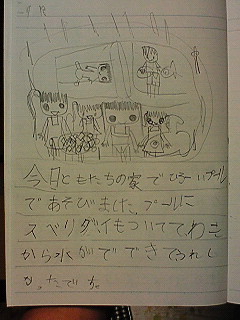 今日ともたちの家でひろいプール
であそびました。プールに
スベリダイもついててわき
から水がでできてうれし
かったでち。